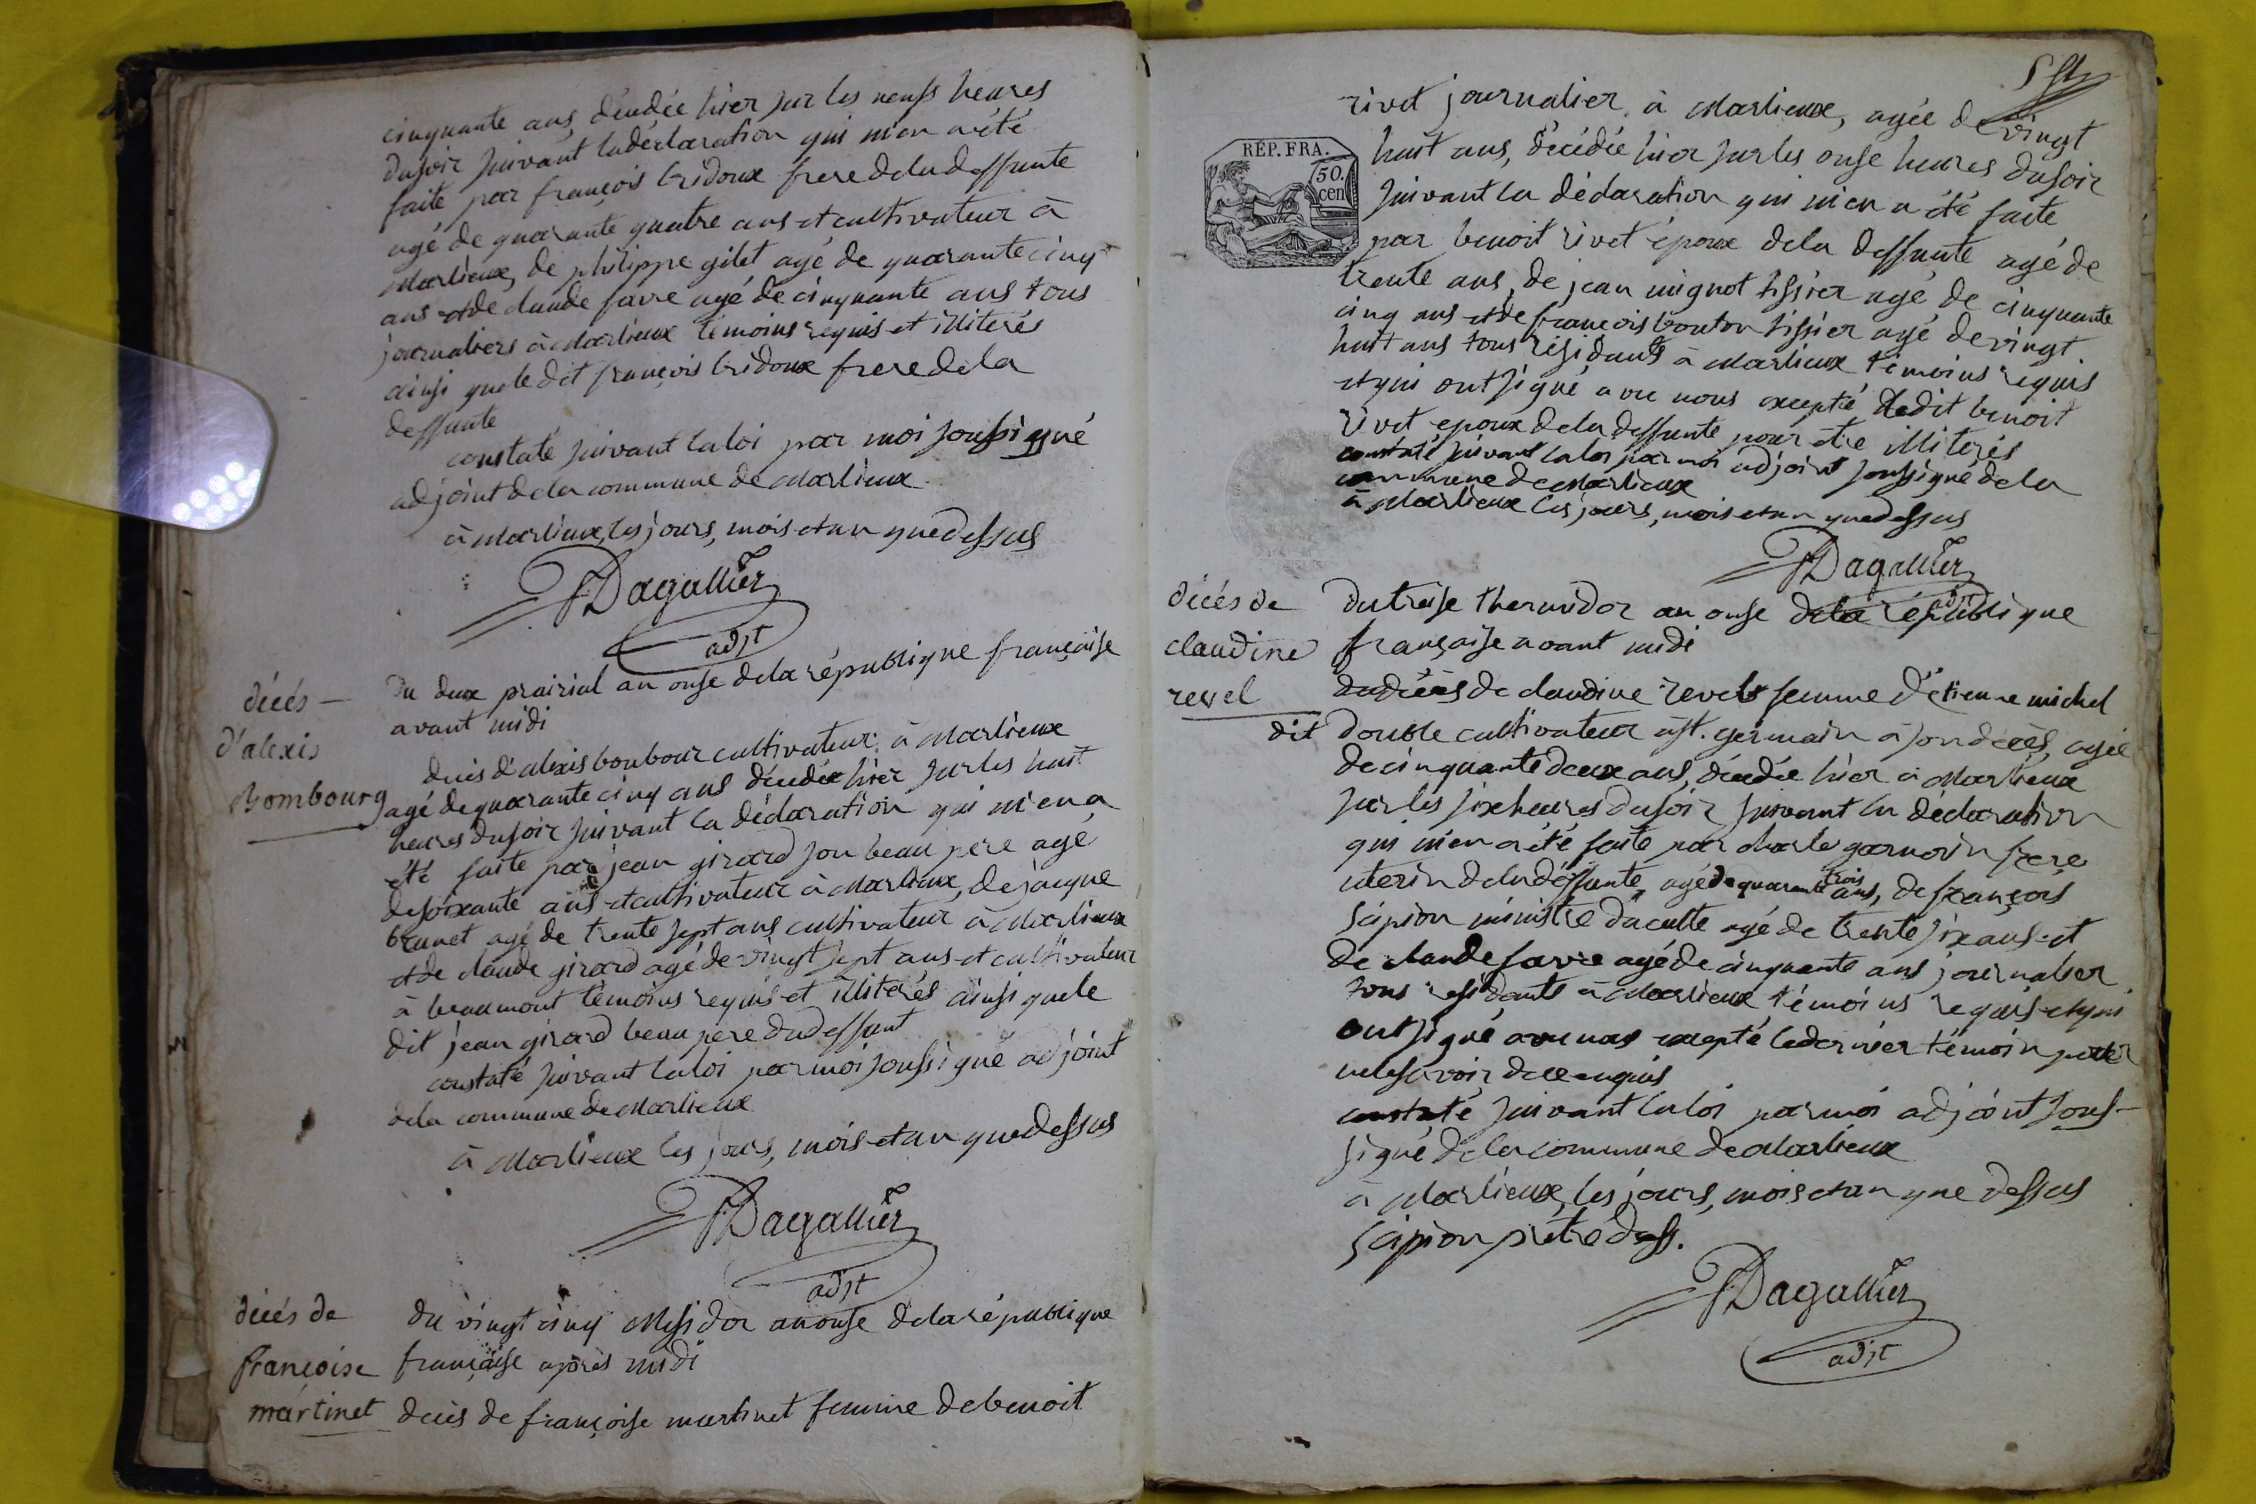 cinquante ans, décédée hier sur les neufs heures
du soir suivant la déclaration qui m'en a été
faite par françois bridoux frere de la deffunte
agé de quarante quatre ans et cultivateur à
Marlieux, de philippe gilet agé de quarante cinq
ans et de claude favre agé de cinquante ans tous
journaliers à Marlieux témoins requis et illiterés
ainsi que le dit françois bridoux frere de la
deffunte
constaté suivant la loi par moi soussigné
adjoint de la commune de Marlieux
à Marlieux, les jours, mois et an que dessus
Dagallier
adjt
décés
d'alexis
Bombourg
Du deux prairial an onse de la république françaisse
avant midi
decés d'alexis bonbour cultivateur à Marlieux
agé de quarante cinq ans décédée hier sur les huit
heures du soir suivant la déclaration qui m'en a
été faite par jean girard son beau pere agé
de soixante ans et cultivateur à Marlieux, de jacque
brunet agé de trente sept ans cultivateur à Marlieux
et de claude girard agé de vingt sept ans et cultivateur
à beaumont témoins requis et illiterés ainsi que le
dit jean girard beau pere du deffunt
constaté suivant la loi par moi soussigné adjoint
de la commune de Marlieux
à Marlieux les jours, mois et an que dessus
Dagallier
adjt
décés de
françoise
martinet
du vingt cinq Messidor an onse de la république
française après midi
decés de françoise martinet femme de benoit
RÉP. FRA.
50.
cen
rivet journalier à Marlieux, agée de vingt
huit ans, décédée hier sur les onse heures du soir
suivant la déclaration qui m'en a été faite
par benoit rivet époux de la deffunte agé de
trente ans, de jean mignot tissier agé de cinquante
cinq ans et de françois bouton tissier agé de vingt
huit ans tous résidants à Marlieux témoins requis
et qui ont signé avec nous excepté ledit benoit
rivet epoux de la deffunte pour etre illiterés
constaté suivant la loi par moi adjoint soussigné de la
commune de Marlieux
à Marlieux les jours, mois et an que dessus
Dagallier
adjt
décés de
claudine
revel
du treise thermidor an onse de la république
française avant midi
du décès de claudine revel femme d'étienne michel
dit double cultivateur à st. germain à son décès, agée
de cinquante deux ans, décédée hier à Marlieux
sur les six heures du soir suivant la déclaration
qui m'en a été faite par charle garnorin frere
uterin de la deffunte, agé de quarante trois ans, de françois
scipion ministre du culte agé de trente six ans et
de claude favre agé de cinquante ans journalier
tous residants à Marlieux témoins requis et qui
ont signé avec nous excepté le dernier témoin pour
ne le savoir de ce enquis
constaté suivant la loi par moi adjoint sous-
signé de la commune de Marlieux
à Marlieux, les jours, mois et an que dessus
Scipion prêtre dess.
Dagallier
adjt